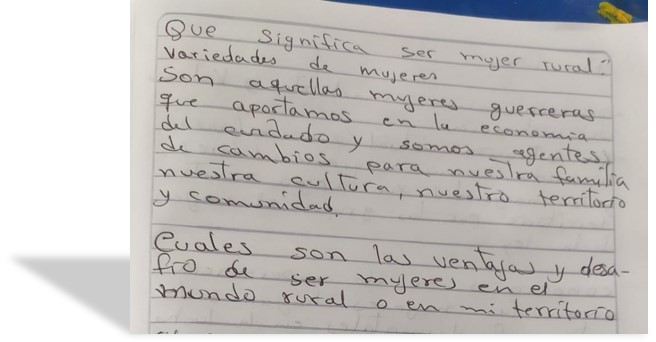 Que significa ser mujer rural?
variedades de mujeres
Son aquellas mujeres guerreras
que aportamos en la economia
del cuidado y somos agentes
de cambios para nuestra familia
nuestra cultura, nuestro territorio
y comunidad.
Cuales son las ventajas y desa-
fio de ser mujeres en el
mundo rural o en mi territorio